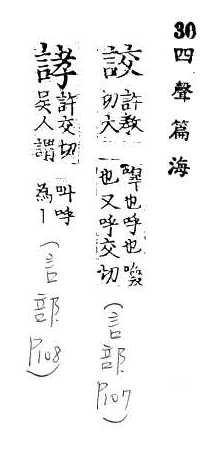 30 四聲篇海
詨 許教切大嘷也呼也喚也又呼交切(言部 P107)
誟 許交切吳人謂叫呼為丨(言部 P108)